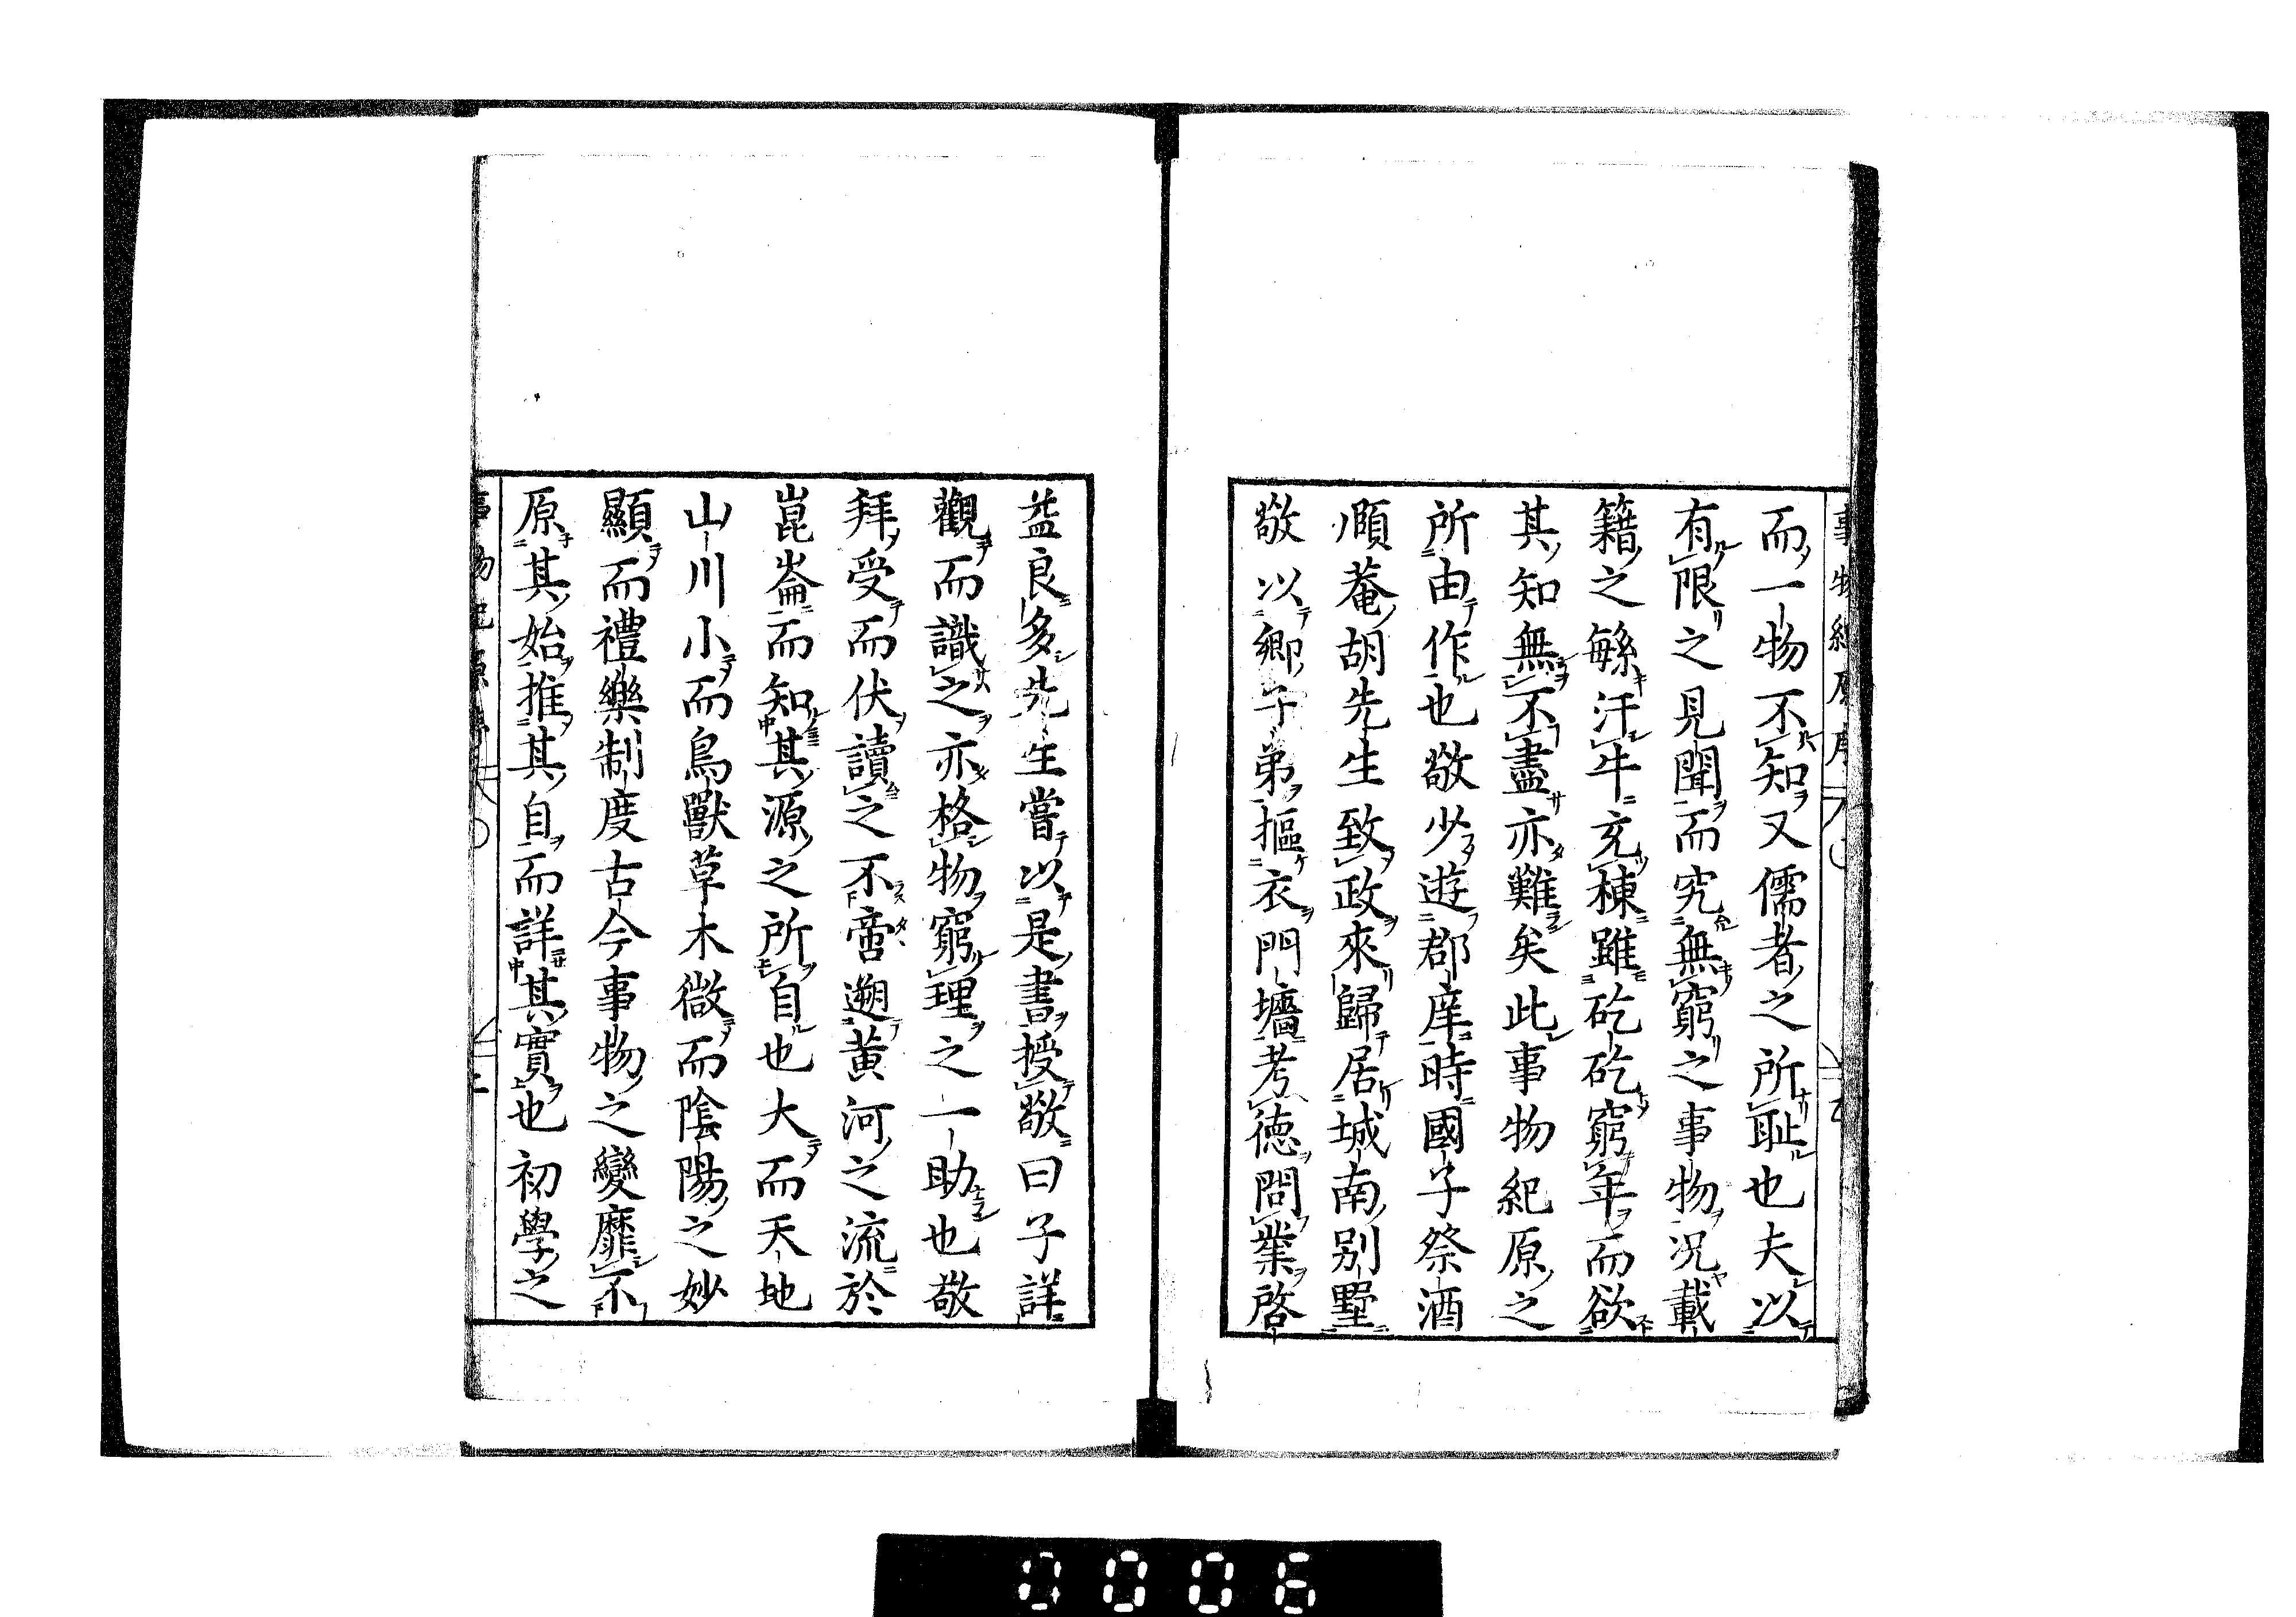 而一物不知又儒者之所耻也夫以
有限之見聞而究無窮之事物况載
籍之緐汗牛充棟雖矻矻窮年而欲
其知無不盡亦難矣此事物紀原之
所由作也敬少遊郡庠時國子祭酒
頤菴胡先生致政來歸居城南别墅
敬以鄉子弟摳衣門墻考德問業啓
益良多先生嘗以是書授敬曰子詳
觀而識之亦格物窮理之一助也敬
拜受而伏讀之不啻遡黄河之流於
崑崙而知其源之所自也大而天地
山川小而鳥獸草木微而陰陽之妙
顯而禮樂制度古今事物之變靡不
原其始推其自而詳其實也初學之
0006